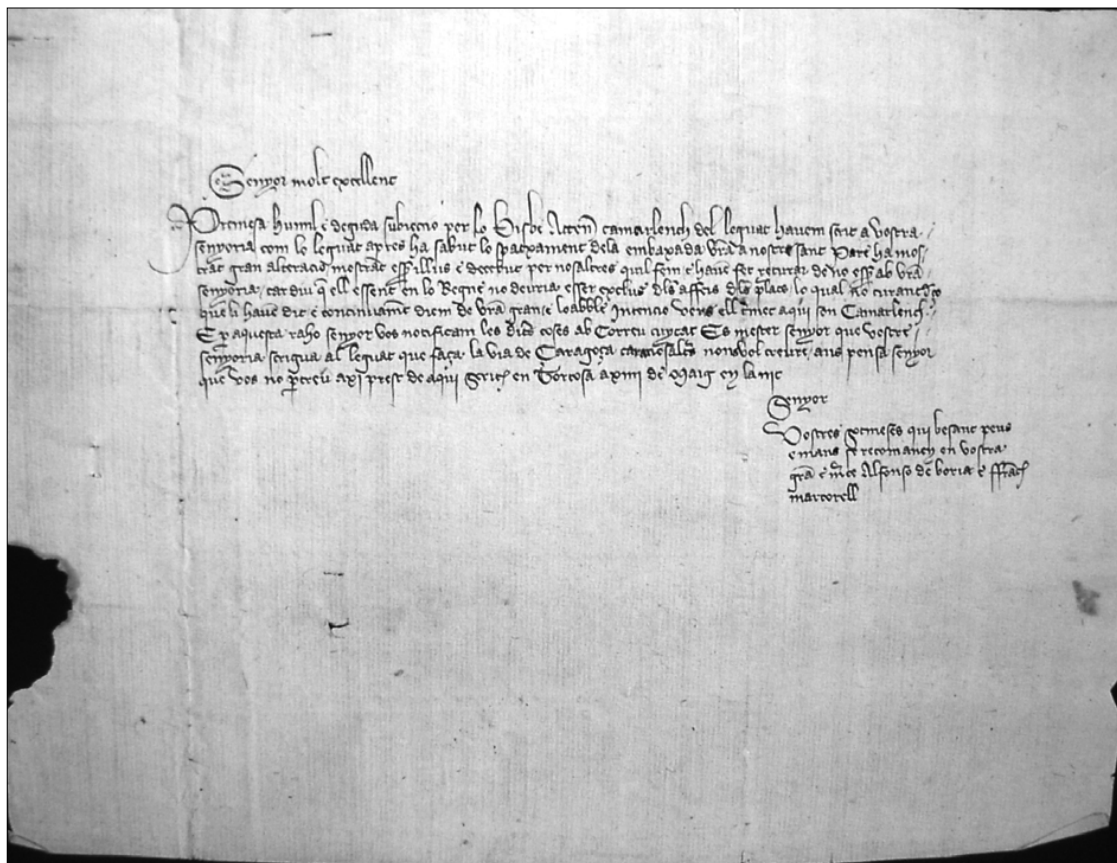 Senyor molt excellent
Promesa humil e deguda subieccio per lo bisbe camarlench del leguat havem scrit a vostra
senyoria com lo leguat apres ha sabut lo spatxament dela embaxada vra a nostre sant Pare ha mos
trat gran alteracio mostrant illus e decebut per nosaltres quil fem e havem fet recturar de no ess ab vra
senyoria car diu q ell essent en lo Regne no devria esser exclus dls affers dls lo qual no
que li havem dit e continuament diem de vra gran e loable Intencio vers ell e mec aqui son Camarlench
E p aquesta raho senyor vos notificam les dites coses ab Correu cuytat Es mester senyor que vostra
senyoria scrigua al leguat que faça la via de Caragoça nonsvol creure ans pensa senyor
que vos no ptreu axi prest de aqui Scrita en Tortosa a xiiii de Maig en la nit
Senyor
Vostres sotmeses qui besant peus
e mans se recomanen en vostra
gra e mce Alfonso de boria e ffrach
martorell